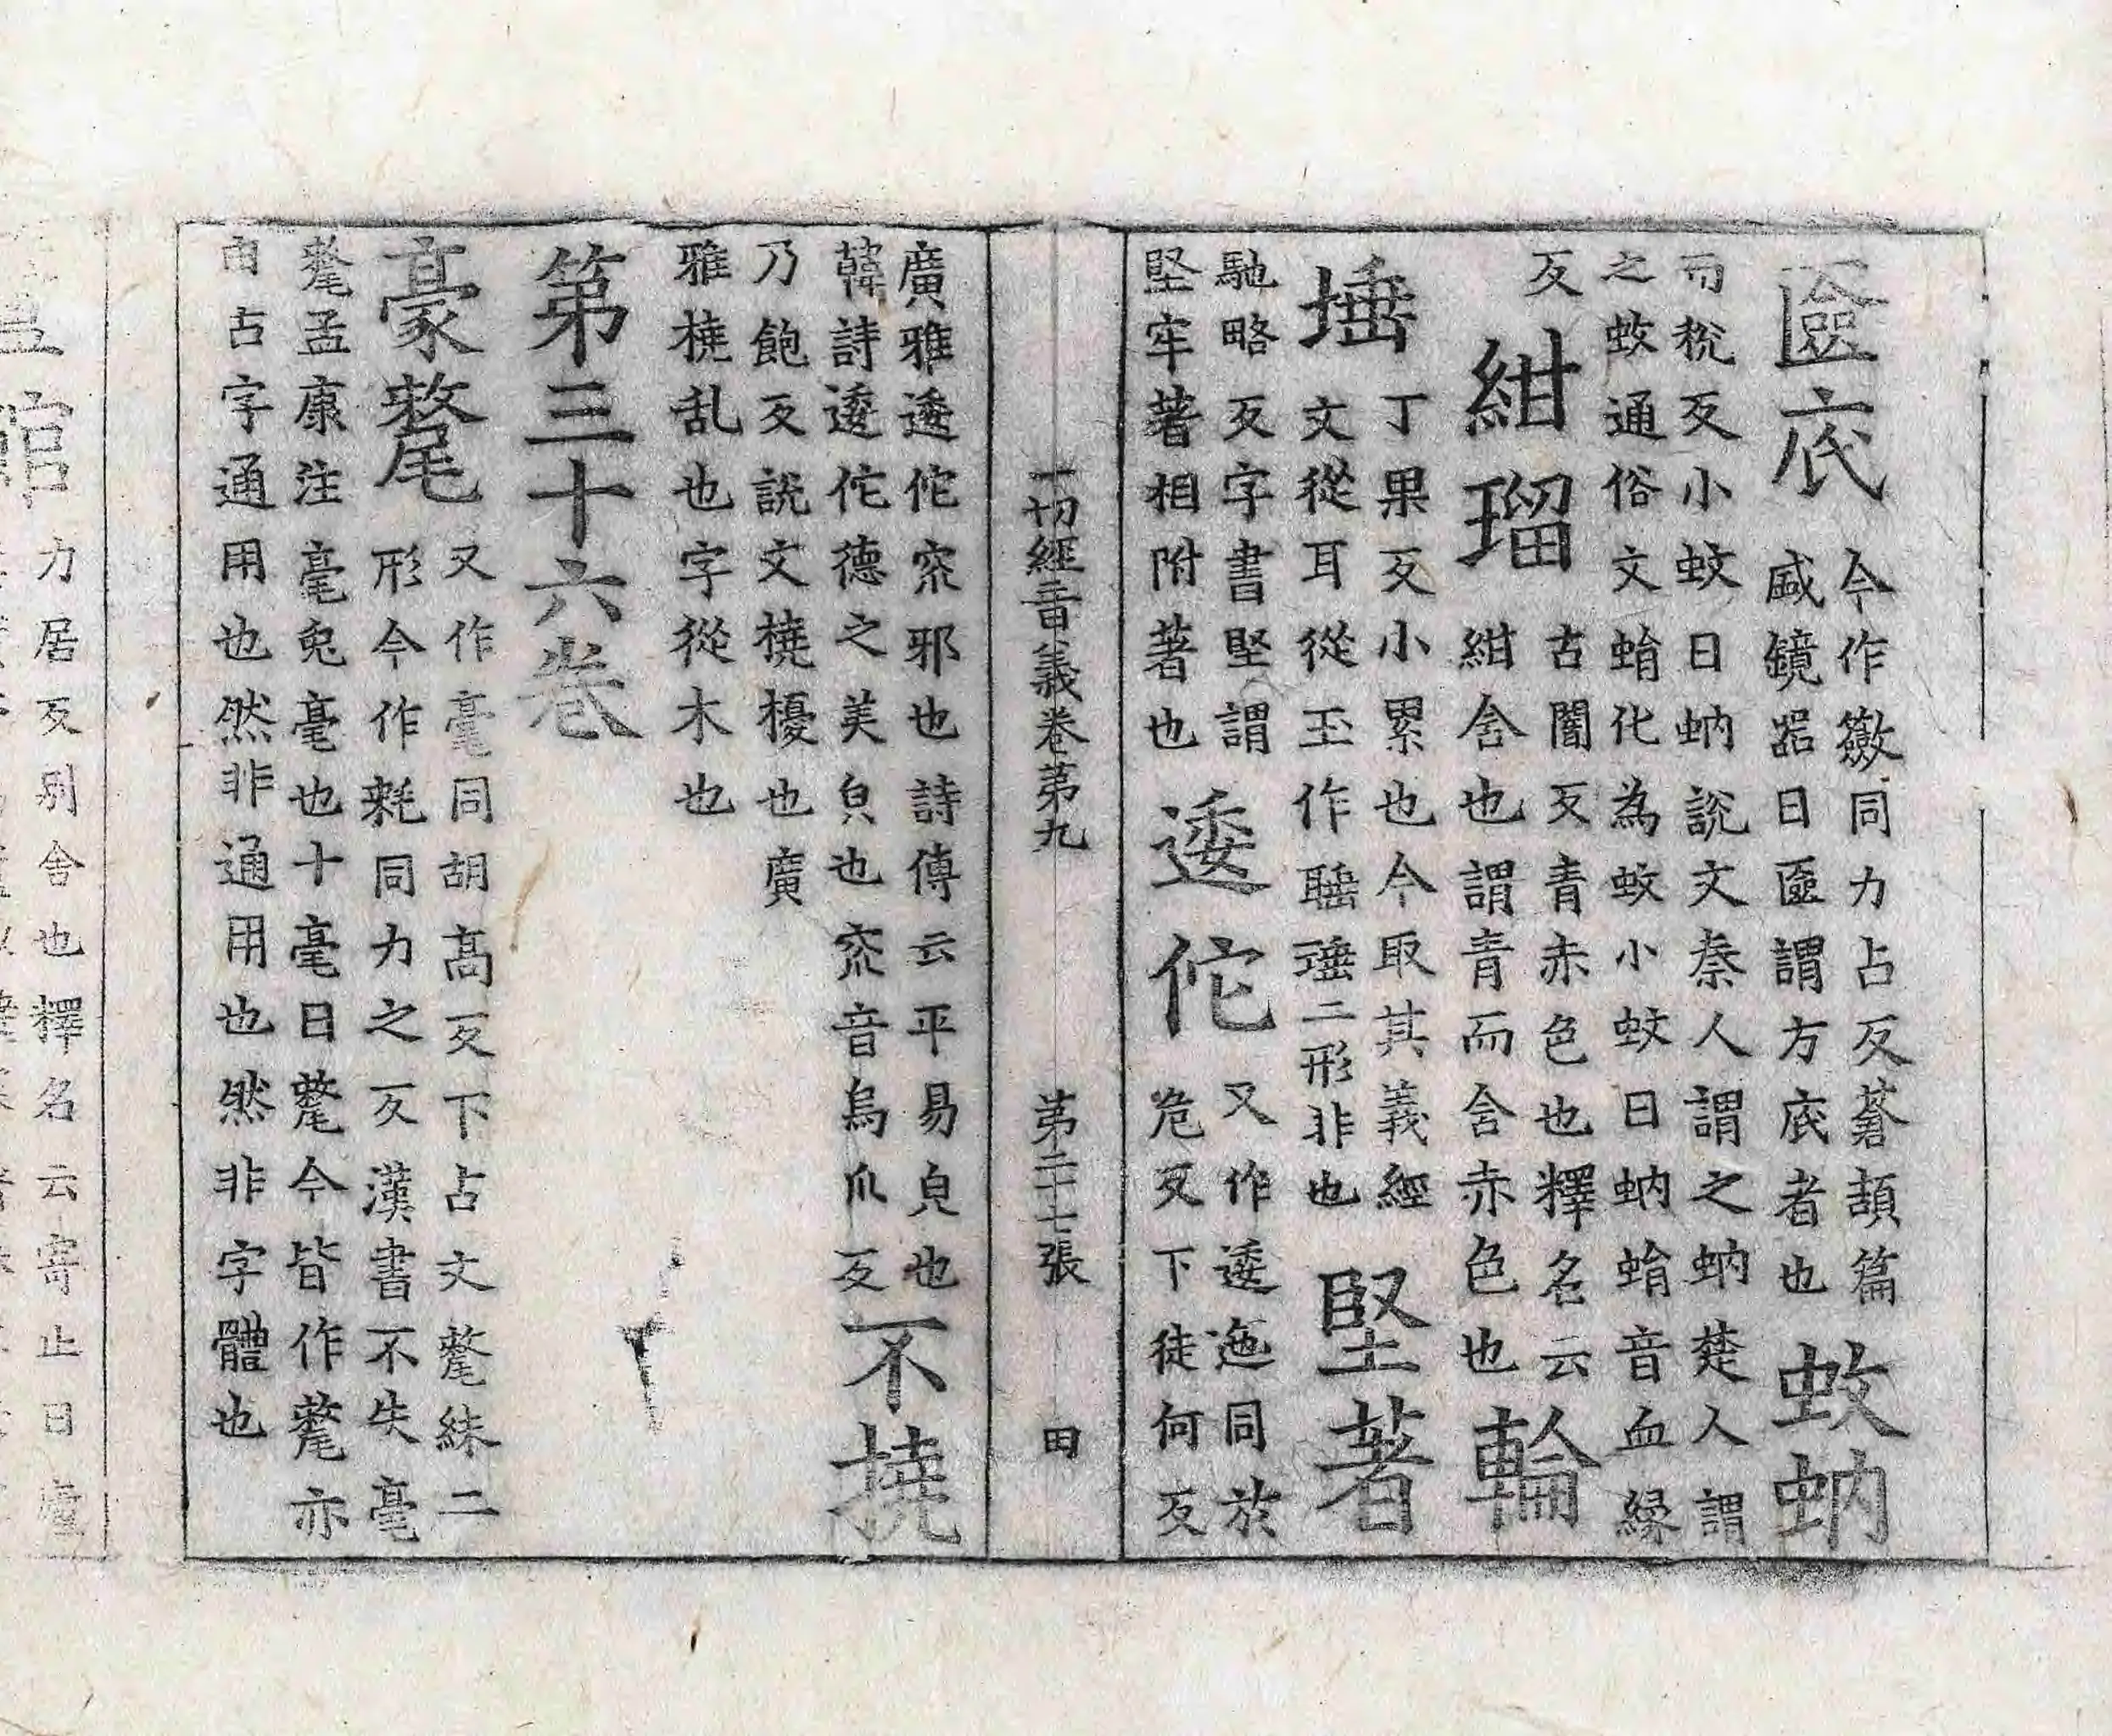 匳底
今作籢同力占反蒼頡篇
盛鏡器曰匳謂方底者也
蚊蚋
而稅反小蚊曰蚋說文秦人謂之蚋楚人謂
之蚊通俗文蜎化為蚊小蚊曰蚋蜎音血緣
反
紺瑠
古闇反青赤色也釋名云
紺含也謂青而含赤色也
輪
埵
丁果反小累也今取其義經
文從耳從玉作㻔二形非也
堅著
馳略反字書堅謂
堅牢著相附著也
逶佗
又作逶迤同於
危反下徒何反
一切經音義卷第九
第二十七張
田
廣雅逶佗窊邪也詩傳云平易皃也
韓詩逶佗德之美皃也窊音烏爪反
不撓
乃飽反說文撓擾也廣
雅橈乱也字從木也
第三十六卷
豪氂
又作毫同胡高反下占文氂綝二
形今作耗同力之反漢書不失毫
氂孟康注毫兔毫也十毫曰氂今皆作氂亦
由古字通用也然非通用也然非字體也
館
力居反別舍也釋名云寄止曰廬